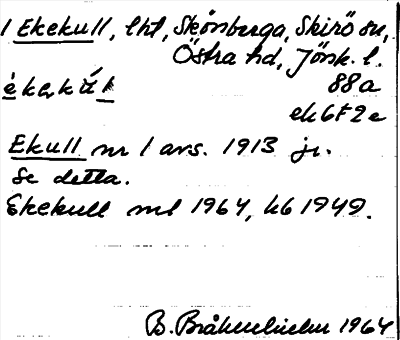 1 Ekekull, lht, Skönsberga, Skirö sn,
Östra hd, Jönk. l.
èkakúl 88a
ek 6F2e
Ekull nr 1 avs. 1913 jr.
Se detta.
Ekekull ml 1964, hb 1949.
B. 1964